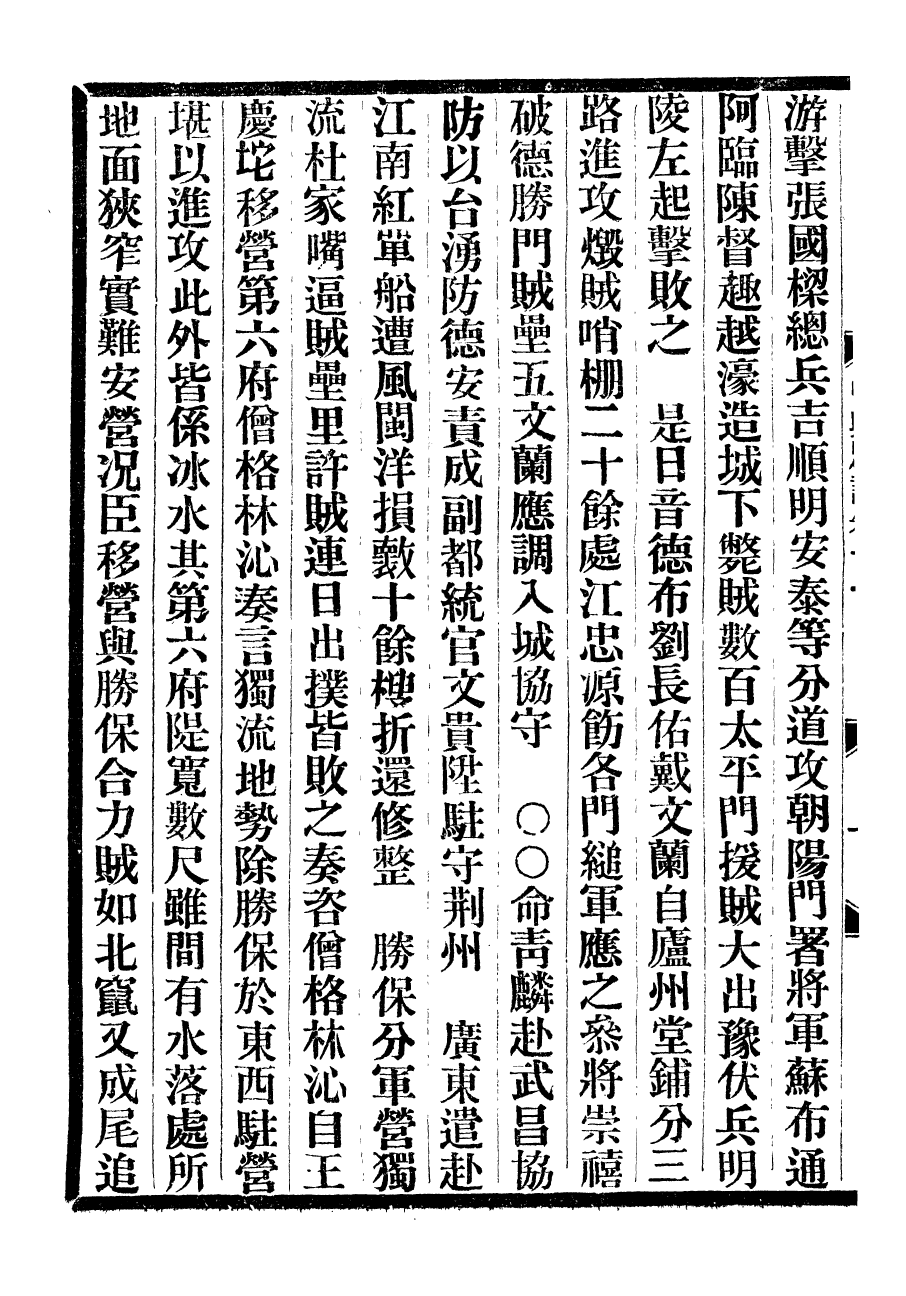 游擊張國樑總兵吉順明安泰等分道攻朝陽門署將軍蘇布通
阿臨陳督趣越濠造城下斃賊數百太平門援賊大出豫伏兵明
陵左起擊敗之　是日音德布劉長佑戴文蘭自廬州堂鋪分三
路進攻燬賊哨棚二十餘處江忠源飭各門縋軍應之參將崇禧
破德勝門賊壘五文蘭應調入城協守　〇〇命靑麟赴武昌協
防以台湧防德安責成副都統官文貴陞駐守荆州　廣東遣赴
江南紅單船遭風閩洋損數十餘艘折還修整　勝保分軍營獨
流杜家嘴逼賊壘里許賊連日出撲皆敗之奏咨僧格林沁自王
慶坨移營第六府僧格林沁奏言獨流地勢除勝保於東西駐營
堪以進攻此外皆係冰水其第六府隄寬數尺雖間有水落處所
地面狹窄實難安營况臣移營與勝保合力賊如北竄又成尾追